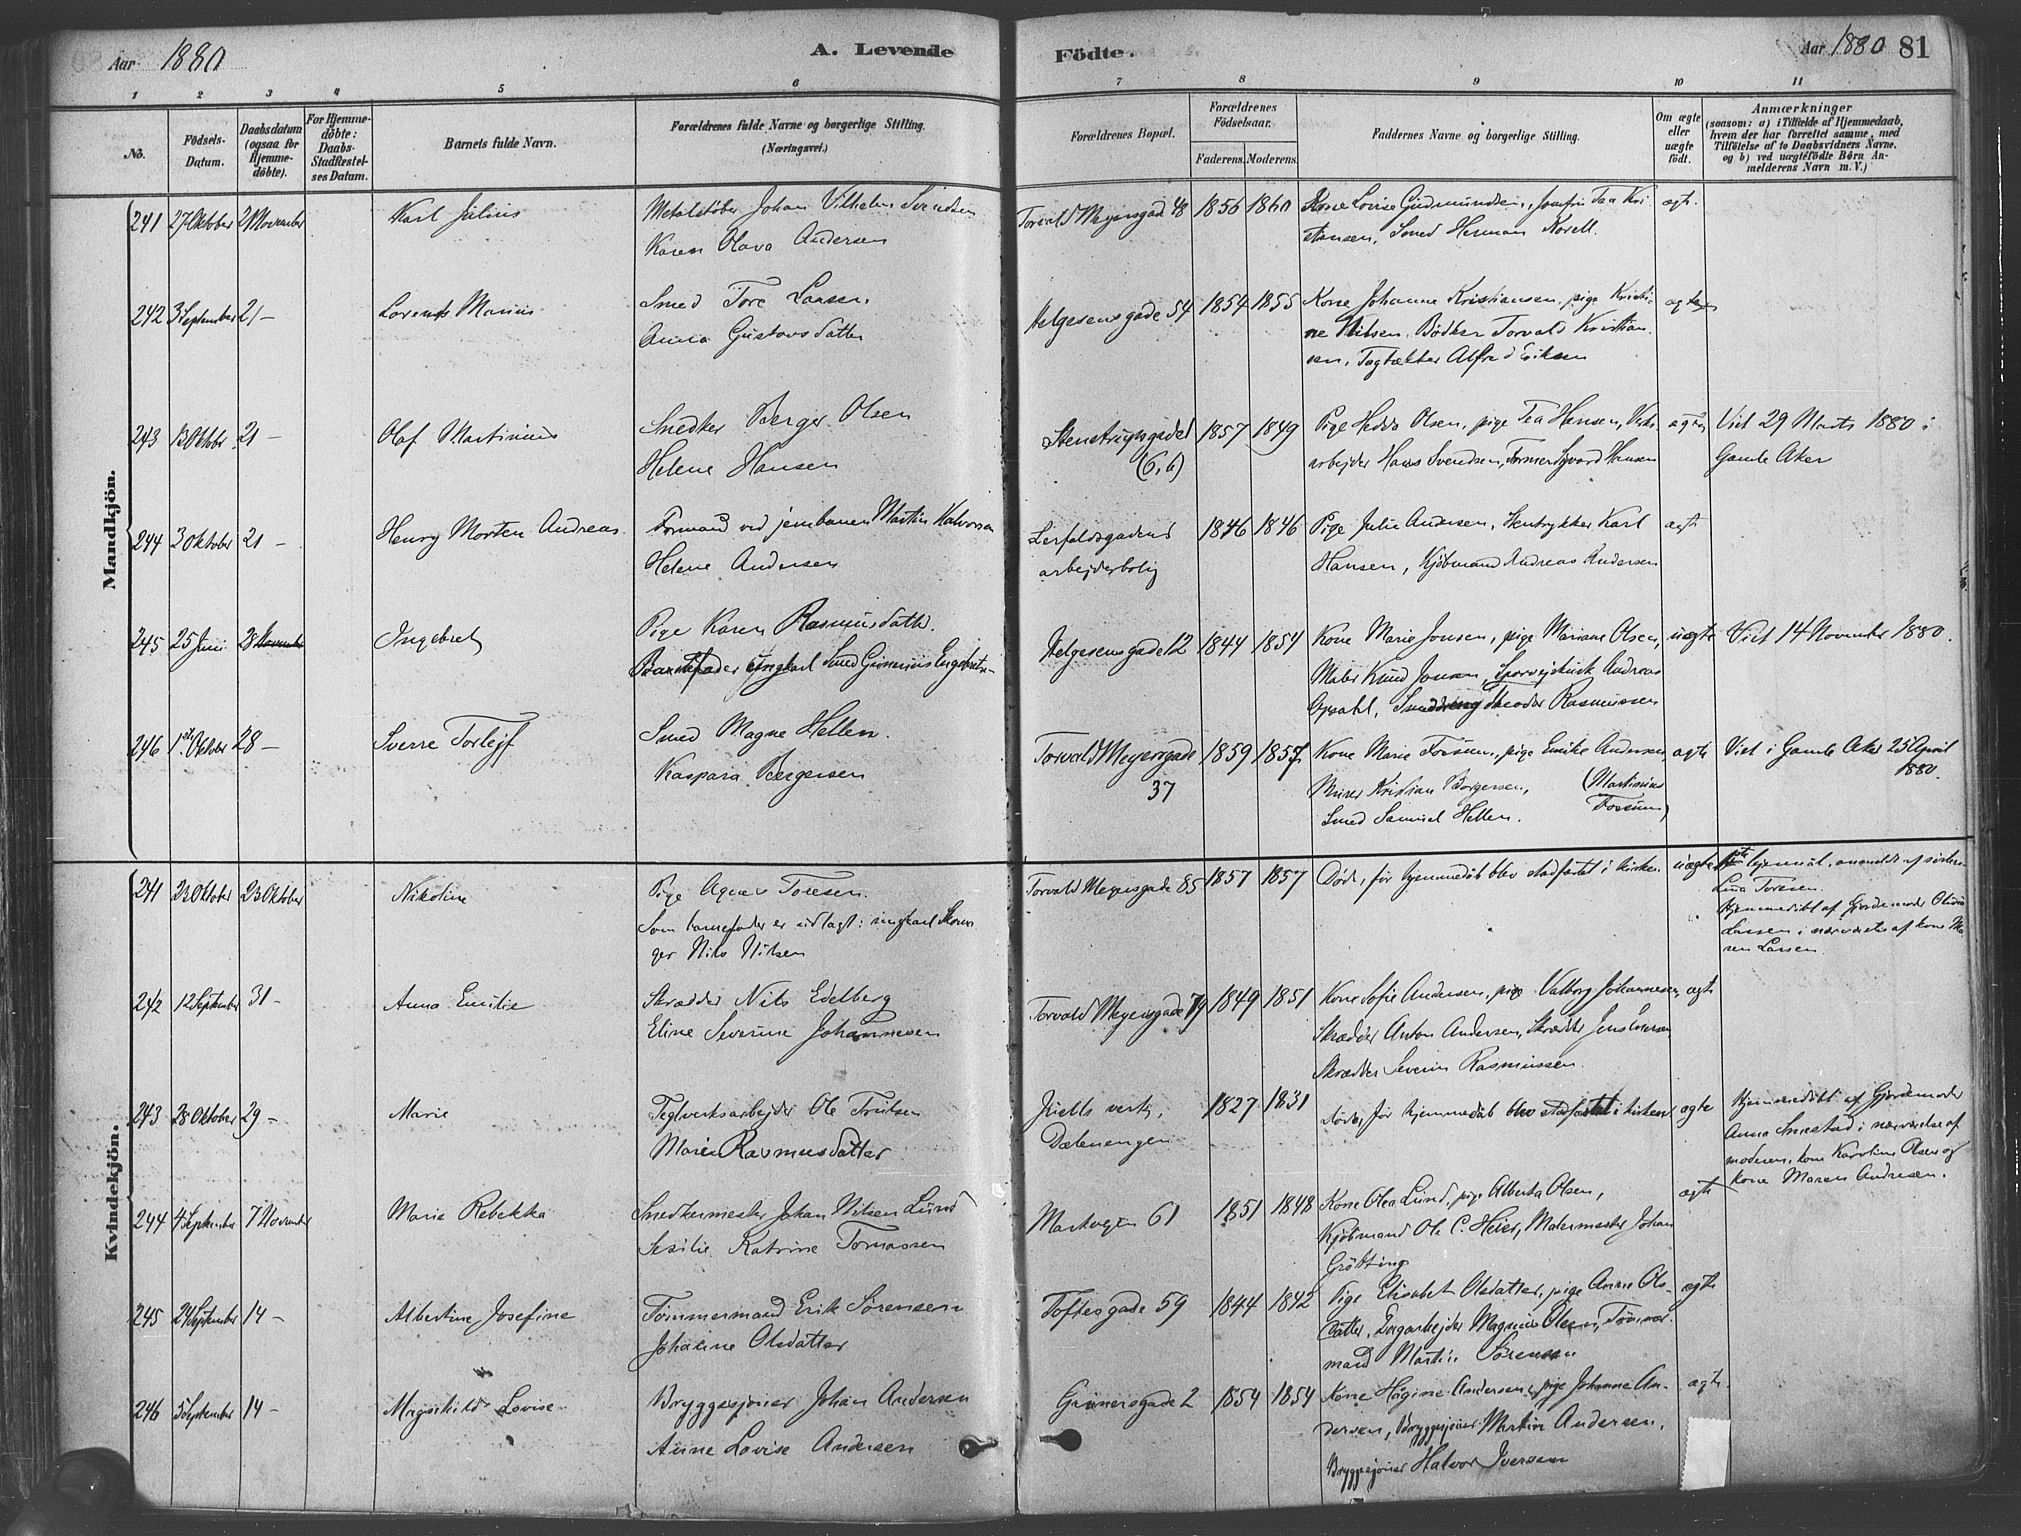 Aar 1880 A. Levende Födte. Aar 1880 81
1 2 3 4 5 6 7 8 9 10 11
No. Födsels-Datum. Daabsdatum (ogsaa for Hjemme-döbte). For Hjemme-döbte: Daabs-Stadfæstel-ses Datum. Barnets fulde Navn. Forældrenes fulde Navne og borgerlige Stilling. (Næringsvei.) Forældrenes Bopæl. Forældrenes Födselsaar. Faderens. Moderens. Faddernes Navne og borgerlige Stilling. Om ægte eller uægte födt. Anmærkninger (saasom: a) i Tilfælde af Hjemmedaab, hvem der har forrettet samme, med Tilföielse af to Daabsvidners Navne. og b) ved uægteföde Börn An-melderens Navn m. V.)
Mandkjön.
241 27 Oktober 21 November Karl Julius Metalstøber Johan Vilhelm Svendsen Torvald Meyersgade 48 1856 1860 Kone Lovise Gudmundsen, Josefin Tea Kri ægte.
Karen Olava Andersen stansen, Smed Herman Rosell.
242 3 September 21 - Lorents Marius Smed Tore Larsen. Helgesensgade 54 1854 1855 Kone Johanne Kristiansen, pige Kristi- ægte
Anna Gustavsdatter ne Nilsen. Bødker Torvald Kristian
sen, Tagtækker Alfred Eriksen
243 13 Oktober 21 - Olaf Martinius Snedker Berger Olsen Stenstrupsgade 1 1857 1849 Pige Hedda Olsen, pige Tea Hansen, Verks- ægte Viet 29 Marts 1880 i
Helene Hansen (6,b) arbejder Hans Svendsen, Former Syvard Hansen Gamle Aker
244 3 Oktober 21 - Henry Morten Andreas Formand ved jernbanen Martin Halvorsen Lerfaldsgadens 1846 1846 Pige Julie Andersen, Stentrykker Karl ægte
Helene Andersen arbejderbolig Hansen, Kjøbmand Andreas Andersen
245 25 Juni 28 November Ingebret Pige Karen Rasmusdatter. Helgesensgade 12 1844 1854 Kone Marie Jonsen, pige Mariane Olsen, uægte Viet 14 November 1880.
Barnefader ungkarl Smed Gunerius Engebretsen Maler Knud Jonsen, Andreas
Opsahl, Theodor Rasmussen
246 1st Oktober 28 - Sverre Torlejf Smed Magne Hellen. Torvald Meyersgade 1859 1857 Kone Marie Fossum, pige Emilie Andersen, ægte Viet i Gamle Aker 25 April
Kaspara Bergersen 37 Murer Kristian Borgersen, (Martinius 1880.
Smed Samuel Hellen. Fossum)
Kvindekjön.
241 23 Oktober 23 Oktober Nikoline Pige Agnes Toresen. Torvald Meyersgade 85 1857 1857 Død, før hjemmedåb blev stadfæstet i kirken uægte anmeldt af søsteren
Som barnefader er udlagt: ungkarl Lina Toresen.
Nils Nilsen Hjemmedøbt af Gjordemoder Olivia
Larsen i nærværelse af kone Ma-
ren Larsen
242 12 September 31 - Anna Emilie Skrædder Nils Edelberg Torvald Meyersgade 79 1849 1851 Kone Sofie Andersen, pige Valborg Johannesen, ægte
Eline Severine Johannesen Skrædder Anton Andersen, Skrædder Jens Iversen,
Skrædder Severin Rasmussen.
243 28 Oktober 29 - Marie Teglverksarbejder Ole Trulsen Kjells verk, 1827 1831 Døde, før hjemmedåb blev stadfæstet i kirken ægte Hjemmedøbt af Gjordemoder
Maren Rasmusdatter Dælenengen Anna Snestad i nærværelse af
moderen, kone Karoline Olsen og
kone Maren Andresen.
244 4 September 7 November Marie Rebekka Snedkermester Johan Nilsen Lund Markvejen 61 1851 1848 Kone Olea Lund, pige Alberta Olsen, ægte
Sesilie Katrine Tomassen Kjøbmand Ole C. Heier, Malermester Johan
Grøtting
245 24 September 14 - Albertine Josefine Tømmermand Erik Sørensen Toftesgade 59 1844 1842 Pige Elisabet Olsdatter, pige Anne Ols- ægte
Johanne Olsdatter datter, Dagarbejder Magnus Olsen, Tømmer-
mand Martin Sørensen
246 5 September 14 - Magnhild Lovise Bryggesjouer Johan Andersen Grünersgade 2 1854 1854 Kone Hagine Andersen, pige Johanne An- ægte
Anne Lovise Andersen dersen, Bryggesjouer Martin Andersen,
Bryggesjouer Halvor Iversen